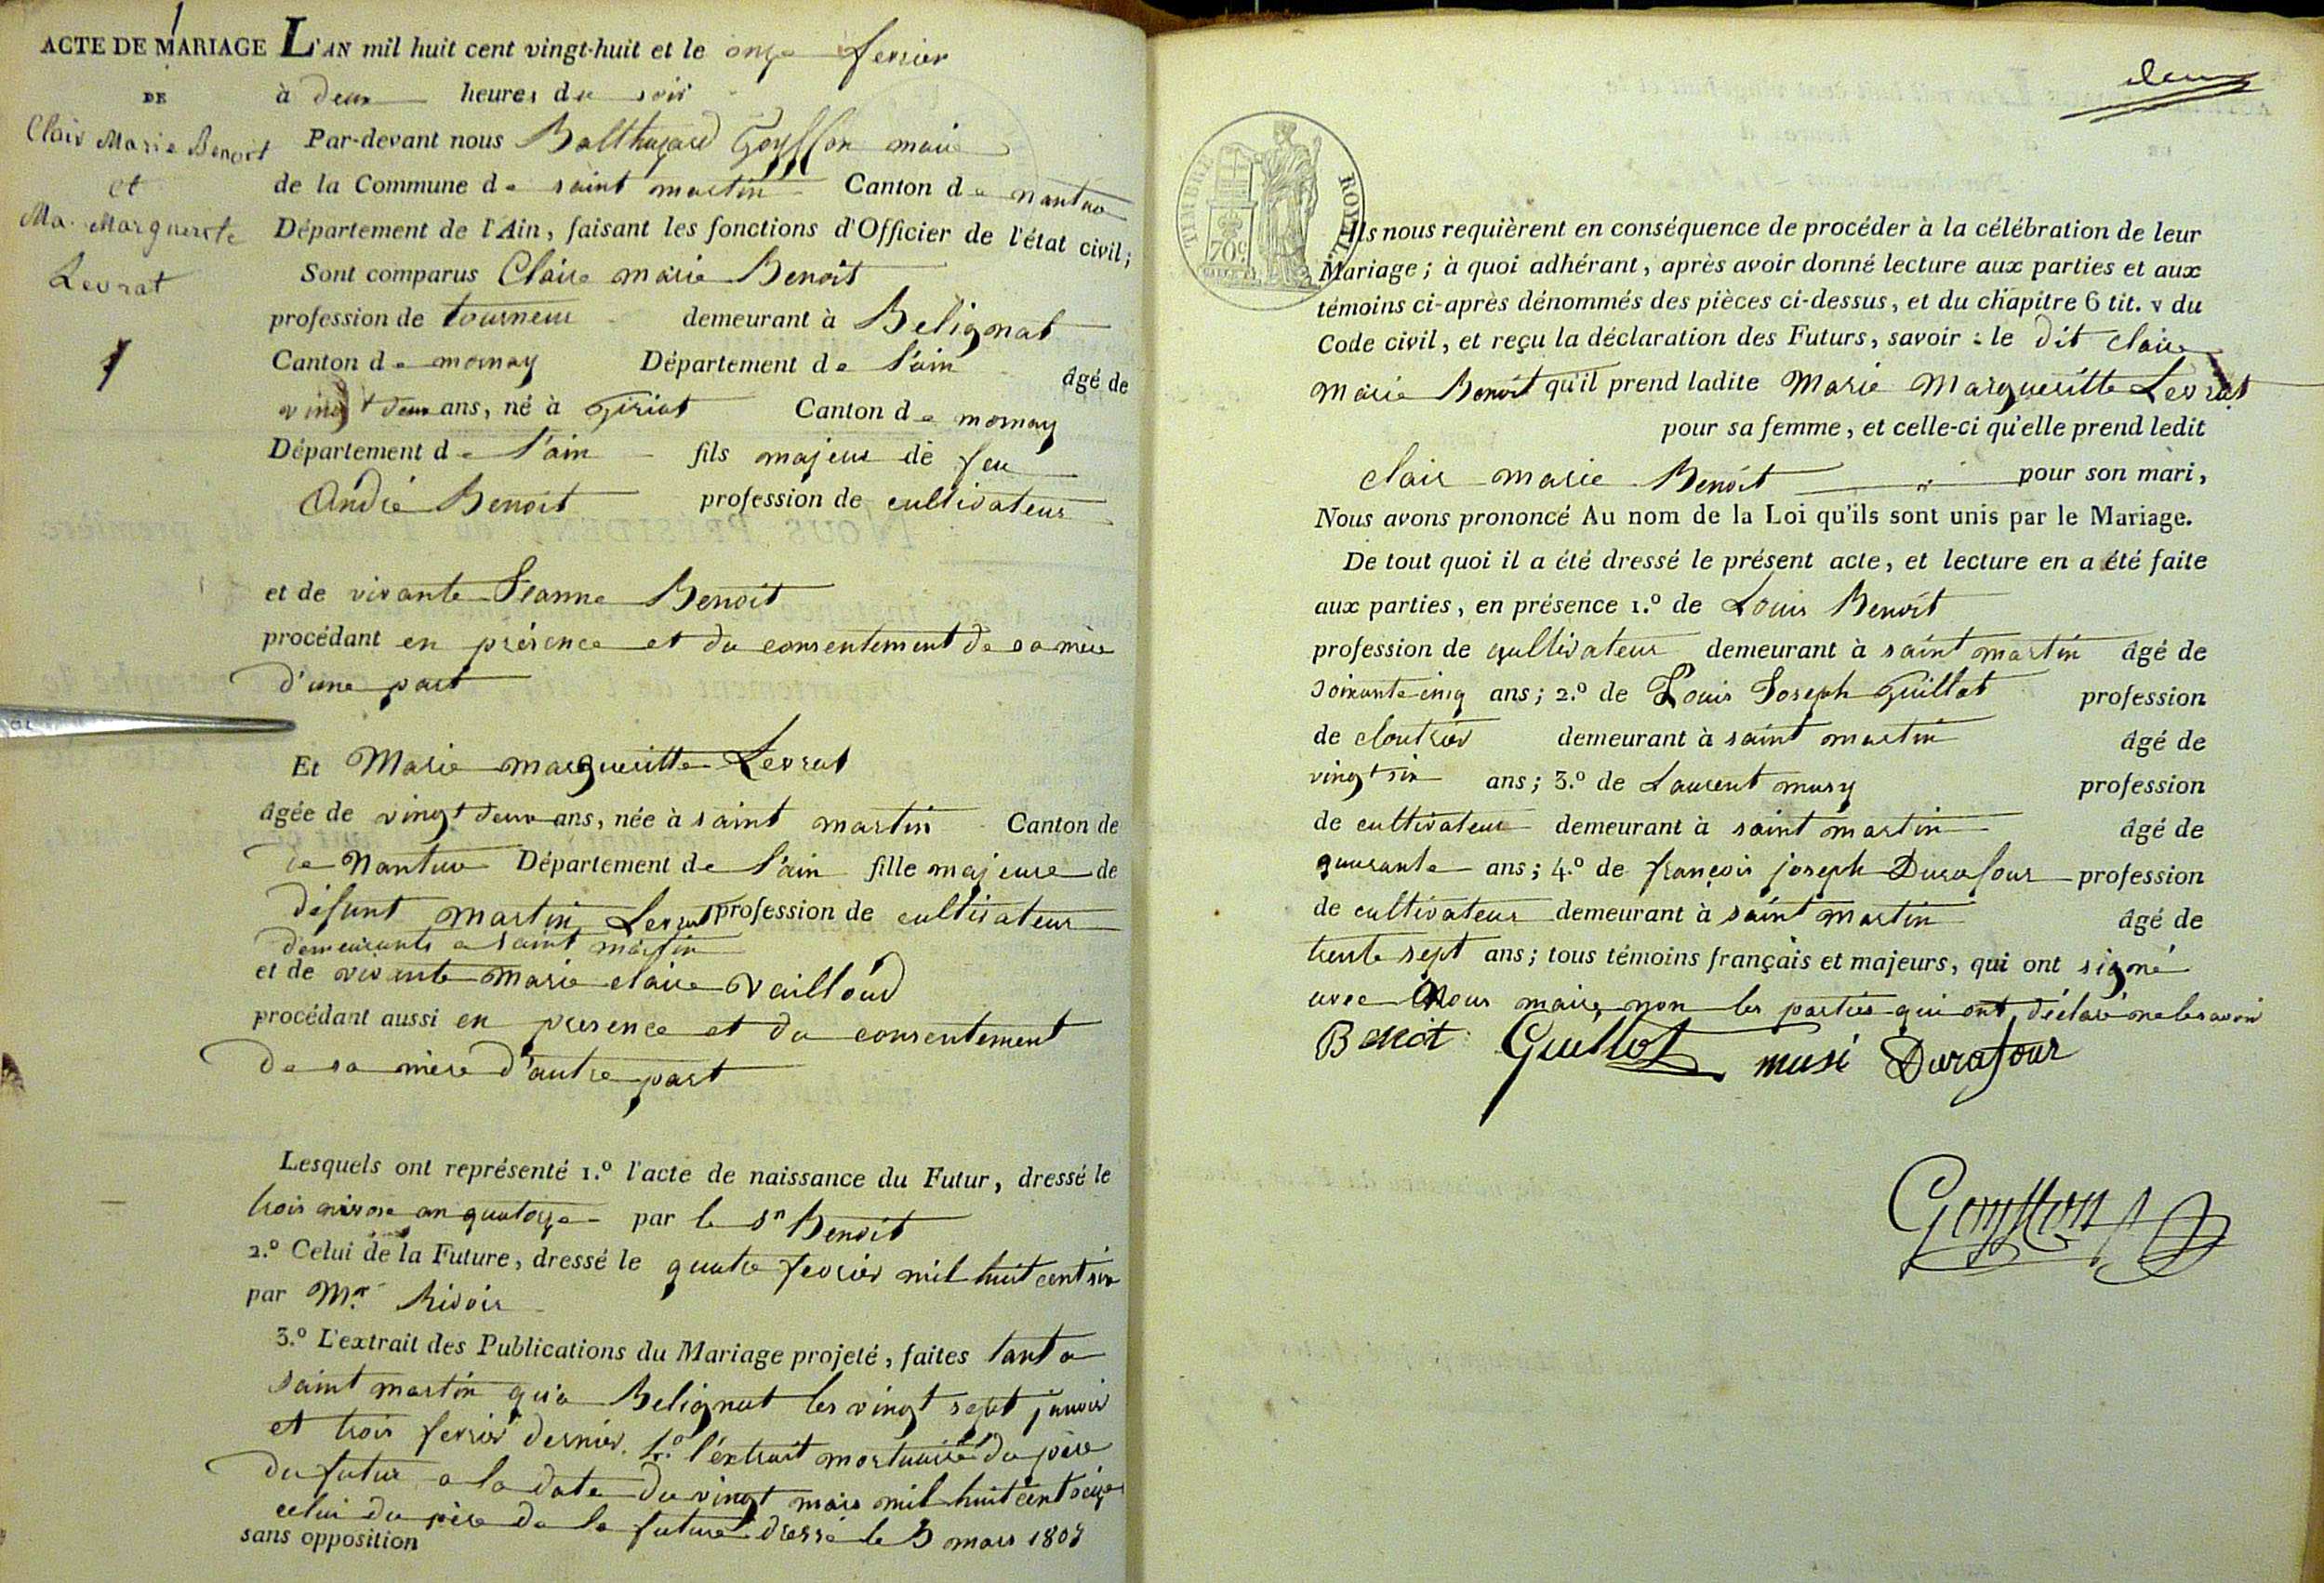 1
ACTE DE MARIAGE
DE
Clair Marie Benoit
et
Ma. Marguerite
Levrat
1
L'AN mil huit cent vingt-huit et le onze fevrier
à deux heures du soir
Par-devant nous Balthazard Goyffon maire
de la Commune de saint martin Canton de nantua
Département de l'Ain, faisant les fonctions d'Officier de l'état civil;
Sont comparus Claire marie Benoit
profession de tourneur demeurant à Belignat
Canton de mornay Département de l'ain âgé de
vingt deux ans, né à Giriat Canton de mornay
Département de l'ain fils majeur de feu
André Benoit profession de cultivateur
et de vivante Jeanne Benoit
procédant en présence et du consentement de sa mère
d'une part
Et Marie margueritte Levrat
âgée de vingt deux ans, née à saint martin Canton de
de Nantua Département de l'ain fille majeure de
défunt martin Levrat profession de cultivateur
demeurants a saint martin
et de vivante marie claire Vailloud
procédant aussi en presence et du consentement
de sa mère d'autre part
Lesquels ont représenté 1.º l'acte de naissance du Futur, dressé le
trois nivose an quatorze par le Sn Benoit
2.º Celui de la Future, dressé le quatre fevrier mil huit cent six
par Mr. Rivoir
3.º L'extrait des Publications du Mariage projeté, faites tant a
saint martin qu'a Belignat les vingt sept janvier
et trois fevrier dernier. 4.º l'extrait mortuaire du père
du futur a la date du vingt mars mil huit cent seize
celui du père de la future dressé le 3 mars 1807
sans opposition
deux
TIMBRE ROYAL
70c.
Ils nous requièrent en conséquence de procéder à la célébration de leur
Mariage; à quoi adhérant, après avoir donné lecture aux parties et aux
témoins ci-après dénommés des pièces ci-dessus, et du chapitre 6 tit. v du
Code civil, et reçu la déclaration des Futurs, savoir : le dit claire
marie Benoit qu'il prend ladite Marie Margueritte Levrat
pour sa femme, et celle-ci qu'elle prend ledit
clair marie Benoit pour son mari,
Nous avons prononcé Au nom de la Loi qu'ils sont unis par le Mariage.
De tout quoi il a été dressé le présent acte, et lecture en a été faite
aux parties, en présence 1.º de Louis Benoit
profession de cultivateur demeurant à saint martin âgé de
soixante cinq ans; 2.º de Louis Joseph Guillot profession
de cloutrier demeurant à saint martin âgé de
vingt six ans; 3.º de Laurent musy profession
de cultivateur demeurant à saint martin âgé de
quarante ans; 4.º de françois joseph Durafour profession
de cultivateur demeurant à saint martin âgé de
trente sept ans; tous témoins français et majeurs, qui ont signé
avec Nous maire, non les parties qui ont déclaré ne le savoir
Benoit Guillot musi Durafour
Goyffon